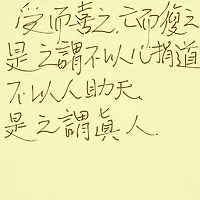 受而喜之,亡而復之
是之謂不以心捐道
不以人助天、
是之謂真人.